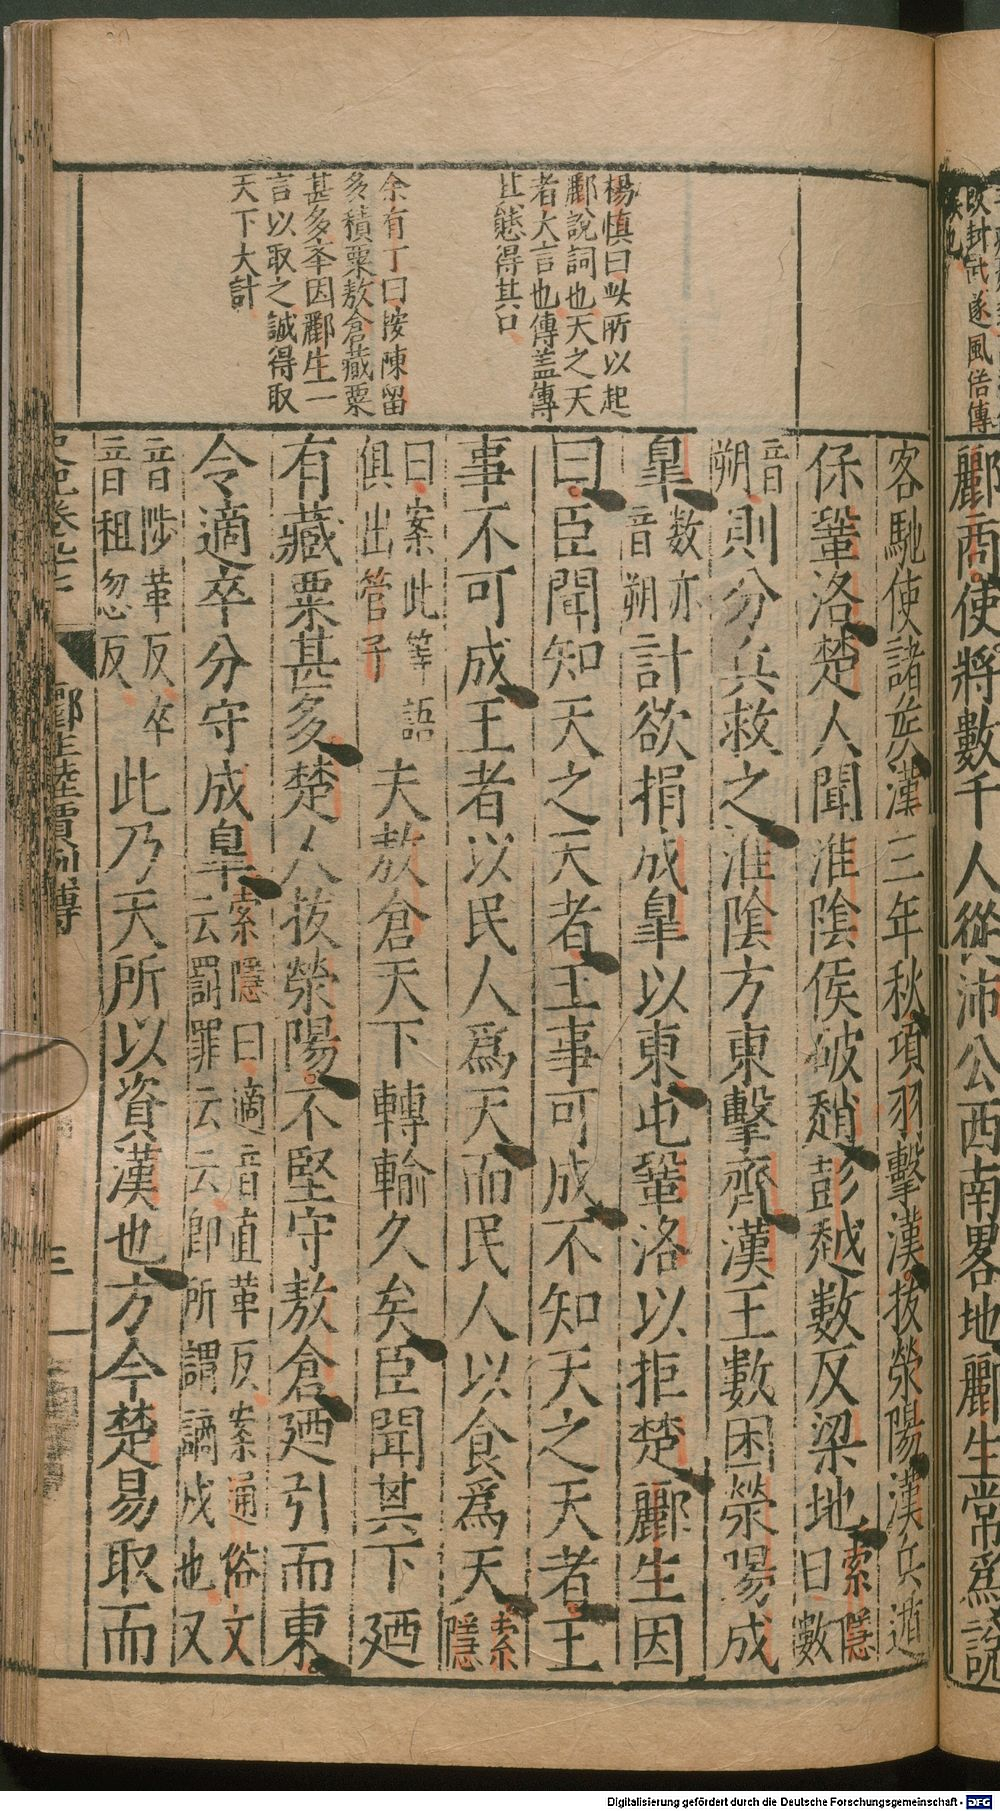 酈商使將數千人從沛公西南畧地酈生常爲說
客馳使諸矦漢三年秋項羽擊漢拔滎陽漢兵遁
保鞏洛楚人聞淮隂侯破趙彭越數反梁地索隱曰數
音朔則分兵救之淮隂方東擊齊漢王數困滎陽成
臯數亦音朔計欲捐成臯以東屯鞏洛以拒楚酈生因
曰臣聞知天之天者王事可成不知天之天者王
事不可成王者以民人爲天而民人以食爲天索隱
曰案此等語俱出管子夫敖倉天下轉輸久矣臣聞其下廼
有藏粟甚多楚人拔滎陽不堅守敖倉廼引而東
令適卒分守成臯索隱曰適音直革反案通俗文云罰罪云云卽所謂謫戍也又
音陟革反卒音租忽反此乃天所以資漢也方今楚易取而
史記卷九十七 酈生陸賈列傳 三
楊慎曰此所以起
酈說詞也天之天
者大言也傳盖傳
其態得其口
余有丁曰按陳留
多積粟敖倉藏粟
甚多夲因酈生一
言以取之誠得取
天下大計
Digitalisierung gefördert durch die Deutsche Forschungsgemeinschaft - DFG